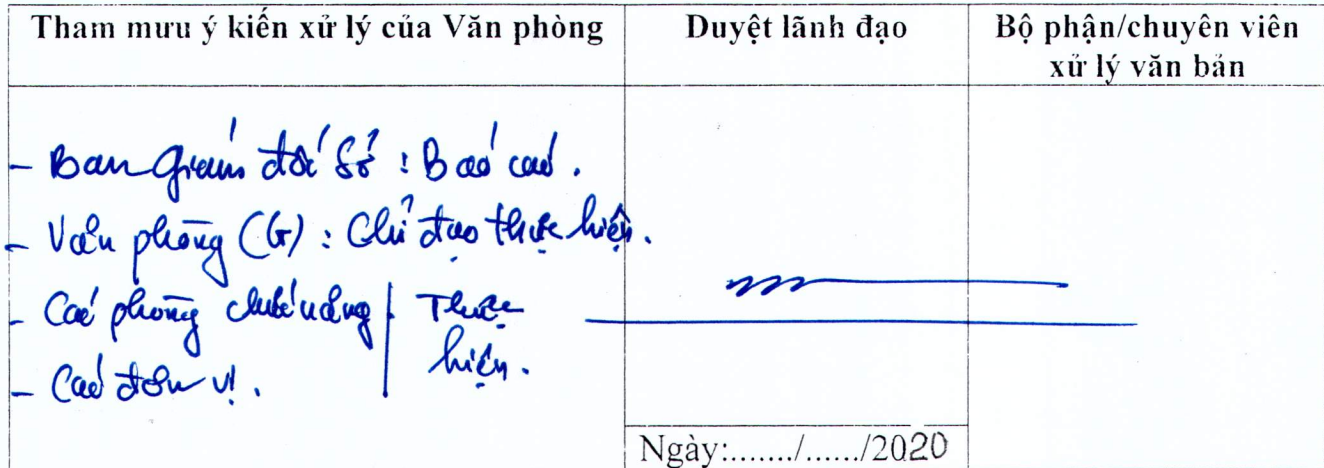 Tham mưu ý kiến xử lý của Văn phòng
Duyệt lãnh đạo
Bộ phận/chuyên viên
xử lý văn bản
- Ban Giám đốc Sở : Báo cáo.
- Văn phòng (G) : Chỉ đạo thực hiện.
- Các phòng chức năng | Thực
- Các đơn vị. | hiện.
Ngày:......./....../2020